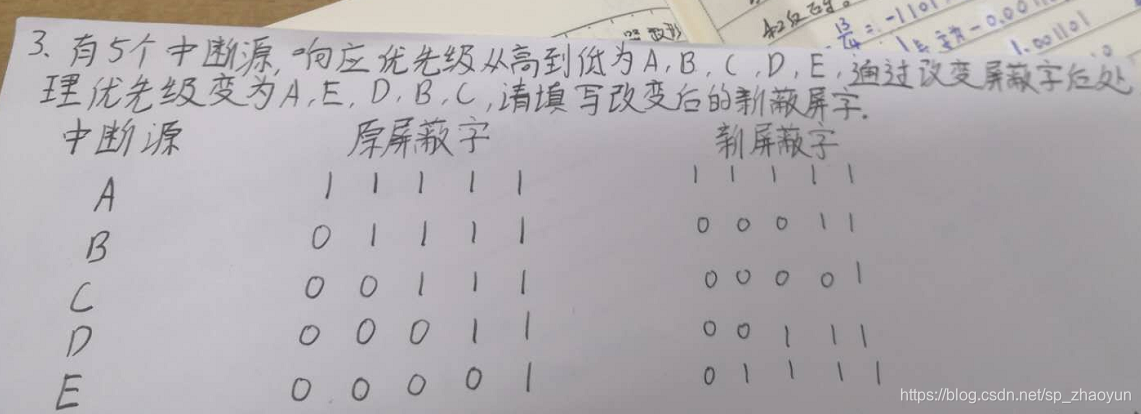 3、有5个中断源,响应优先级从高到低为A,B,C,D,E,通过改变屏蔽字后处
理优先级变为A,E,D,B,C,请填写改变后的新蔽屏字.
中断源 原屏蔽字 新屏蔽字
A 1 1 1 1 1 1 1 1 1 1
B 0 1 1 1 1 0 0 0 1 1
C 0 0 1 1 1 0 0 0 0 1
D 0 0 0 1 1 0 0 1 1 1
E 0 0 0 0 1 0 1 1 1 1
https://blog.csdn.net/sp_zhaoyun